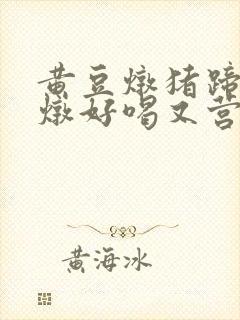 黄豆燉猪蹄
燉好喝又营
黄海冰